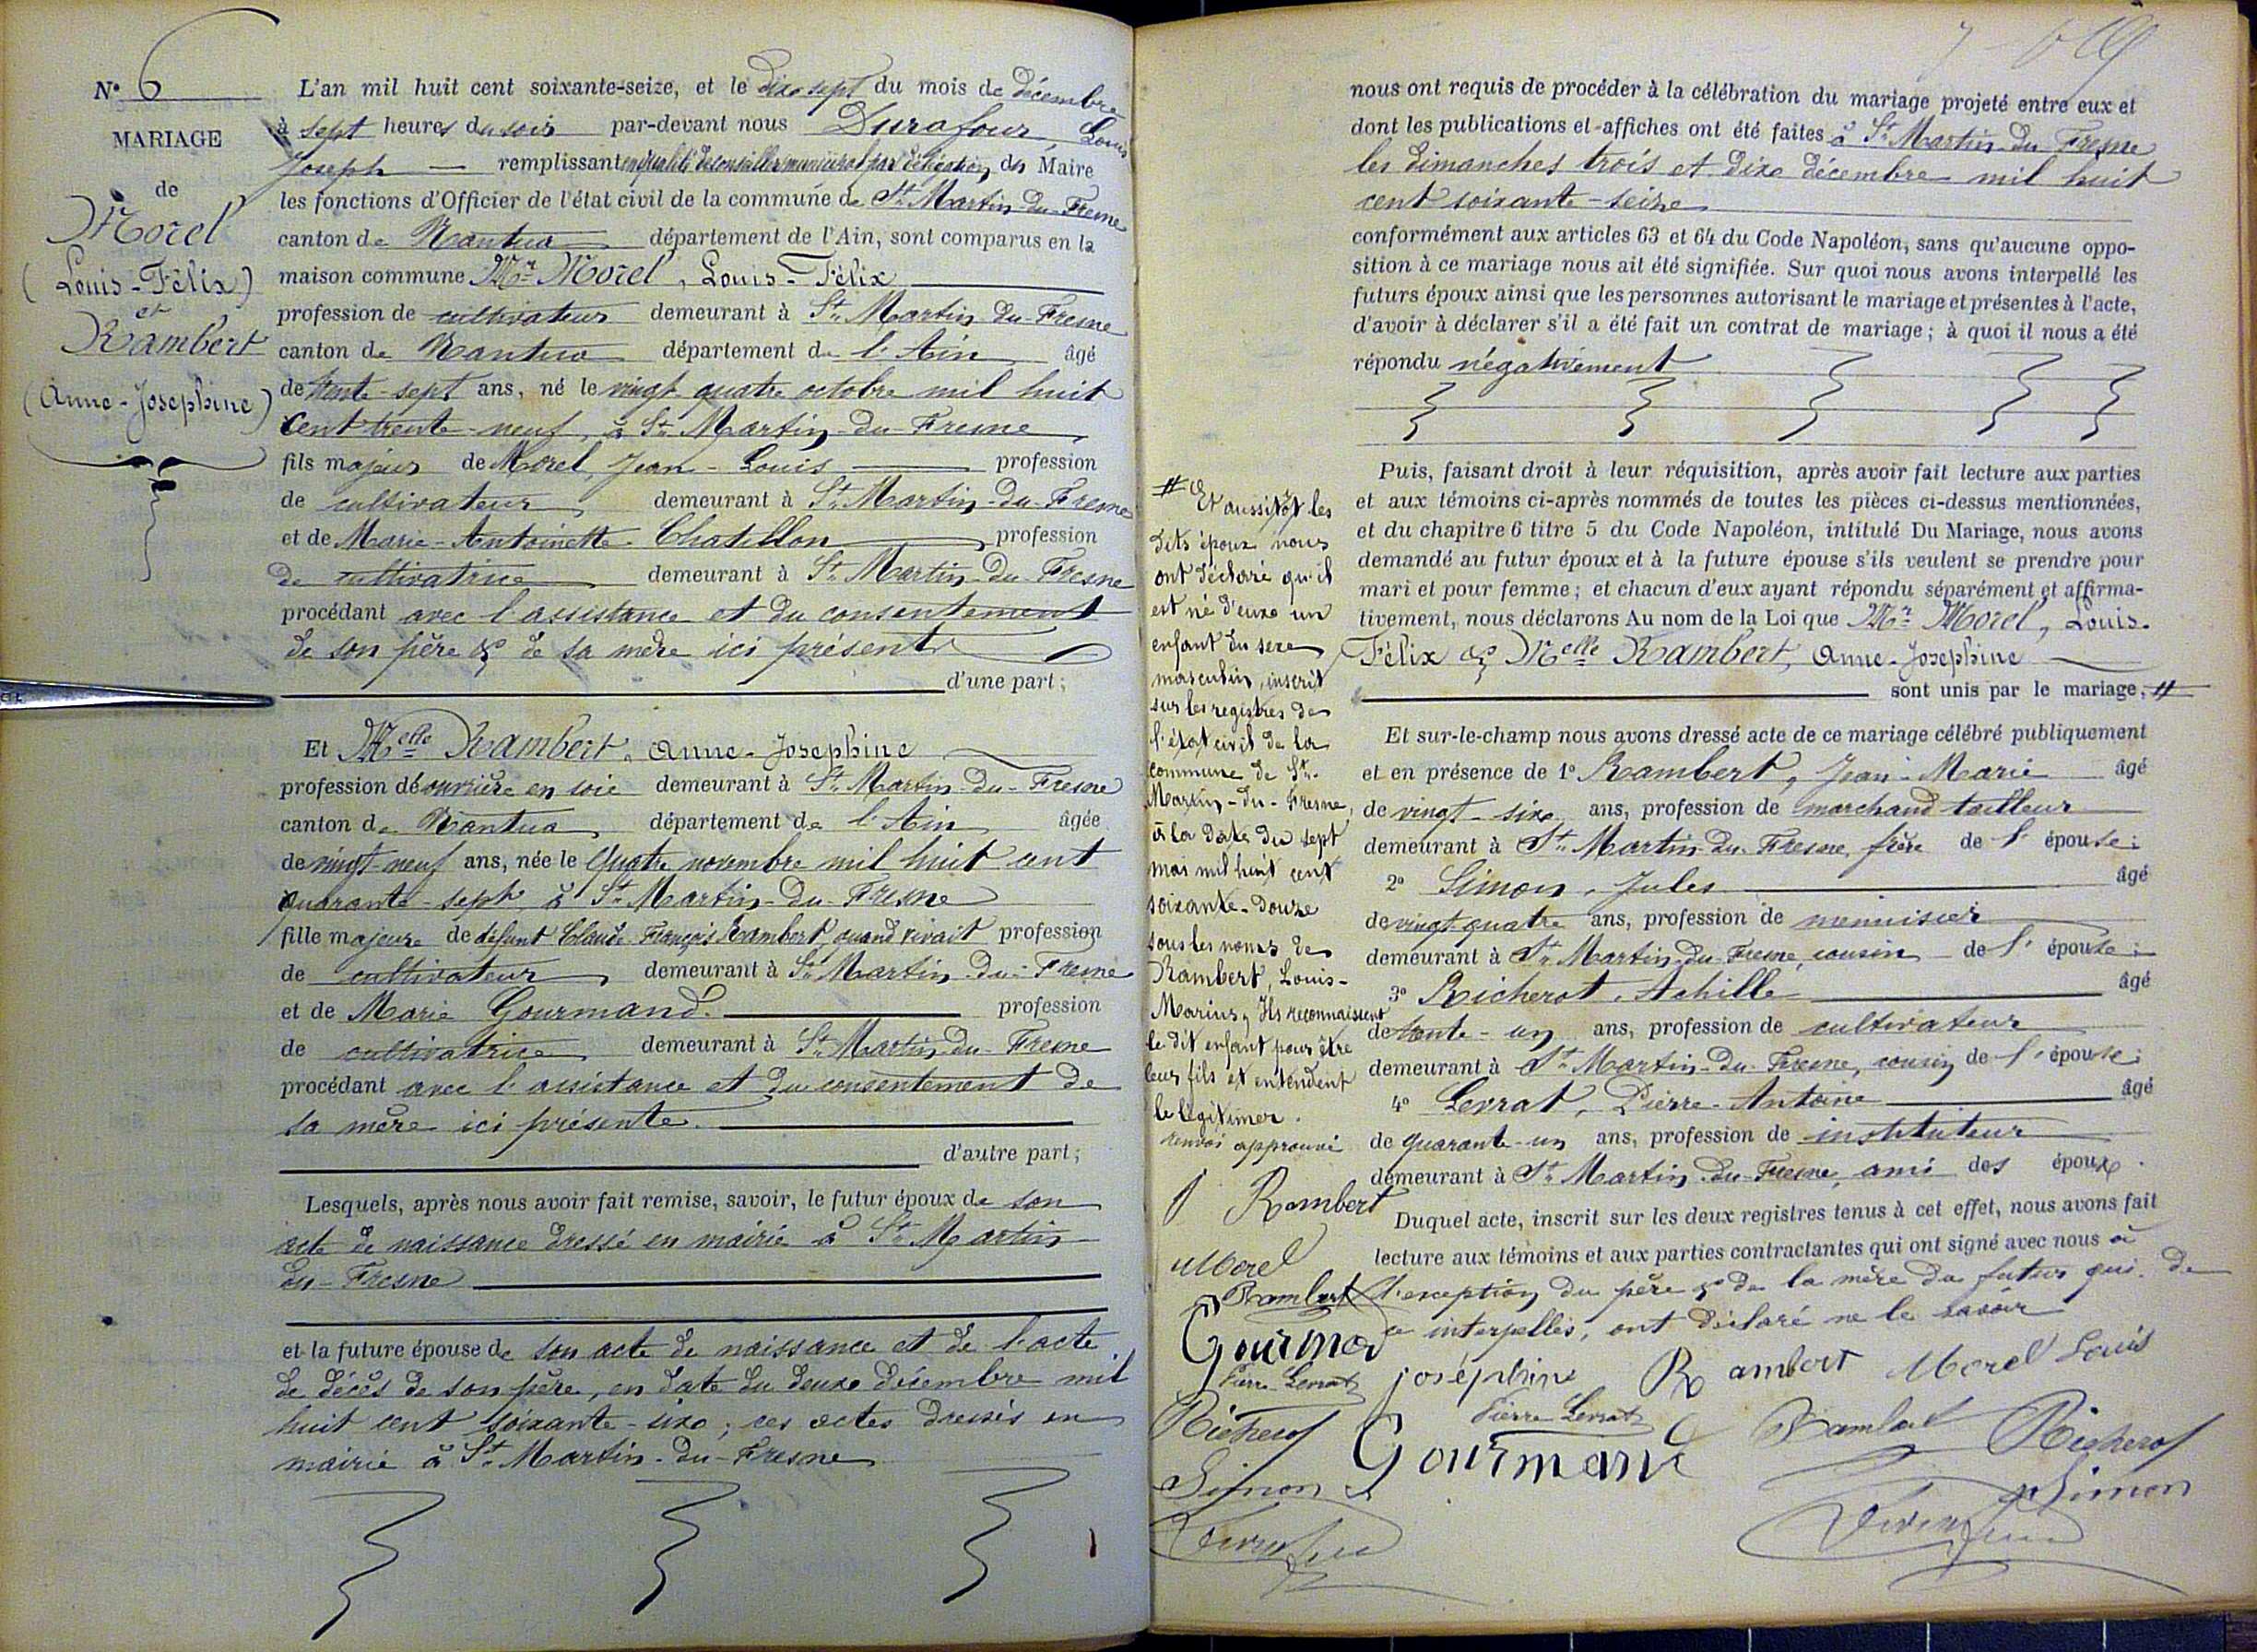 N° 6
MARIAGE
de
Morel
(Louis-Félix)
et
Rambert
(Anne-Josephine)
L'an mil huit cent soixante-seize, et le dix sept du mois de décembre
à sept heures du soir par-devant nous Durafour Louis
Joseph — remplissant en qualité de conseiller municipal par délégation du Maire
les fonctions d'Officier de l'état civil de la commune de St Martin-du-Fresne
canton de Nantua département de l'Ain, sont comparus en la
maison commune Mr Morel, Louis-Félix
profession de cultivateur demeurant à St Martin-du-Fresne
canton de Nantua département de l'Ain âgé
de trente-sept ans, né le vingt quatre octobre mil huit
cent trente-neuf, à St Martin-du-Fresne
fils majeur de Morel, Jean-Louis profession
de cultivateur demeurant à St Martin-du-Fresne
et de Marie-Antoinette Chatillon profession
de cultivatrice demeurant à St Martin-du-Fresne
procédant avec l'assistance et du consentement
de son père & de sa mère ici présents
d'une part;
Et Melle Rambert, Anne-Josephine
profession d'ouvrière en soie demeurant à St Martin-du-Fresne
canton de Nantua département de l'Ain âgée
de vingt-neuf ans, née le quatre novembre mil huit cent
quarante-sept, à St Martin-du-Fresne
fille majeure de défunt Claude-François Rambert, quand vivait profession
de cultivateur demeurant à St Martin-du-Fresne
et de Marie Gourmand. profession
de cultivatrice demeurant à St Martin-du-Fresne
procédant avec l'assistance et du consentement de
sa mère ici présente.
d'autre part;
Lesquels, après nous avoir fait remise, savoir, le futur époux de son
acte de naissance dressé en mairie à St Martin-
du-Fresne
et la future épouse de son acte de naissance et de l'acte
de décès de son père, en date du deux décembre mil
huit cent soixante-six; ces actes dressés en
mairie à St Martin-du-Fresne
nous ont requis de procéder à la célébration du mariage projeté entre eux et
dont les publications et affiches ont été faites à St Martin-du-Fresne
les dimanches trois et dix décembre mil huit
cent soixante-seize
conformément aux articles 63 et 64 du Code Napoléon, sans qu'aucune oppo-
sition à ce mariage nous ait été signifiée. Sur quoi nous avons interpellé les
futurs époux ainsi que les personnes autorisant le mariage et présentes à l'acte,
d'avoir à déclarer s'il a été fait un contrat de mariage; à quoi il nous a été
répondu négativement
Puis, faisant droit à leur réquisition, après avoir fait lecture aux parties
et aux témoins ci-après nommés de toutes les pièces ci-dessus mentionnées,
et du chapitre 6 titre 5 du Code Napoléon, intitulé Du Mariage, nous avons
demandé au futur époux et à la future épouse s'ils veulent se prendre pour
mari et pour femme; et chacun d'eux ayant répondu séparément et affirma-
tivement, nous déclarons Au nom de la Loi que Mr Morel, Louis-
Félix & Melle Rambert, Anne-Josephine
sont unis par le mariage, #
Et sur-le-champ nous avons dressé acte de ce mariage célébré publiquement
et en présence de 1° Rambert, Jean-Marie âgé
de vingt-six ans, profession de marchand tailleur
demeurant à St Martin-du-Fresne, frère de l'épouse;
2° Simon, Jules âgé
de vingt-quatre ans, profession de menuisier
demeurant à St Martin-du-Fresne, cousin de l'épouse;
3° Richerot, Achille âgé
de trente-un ans, profession de cultivateur
demeurant à St Martin-du-Fresne, cousin de l'épouse;
4° Levrat, Pierre-Antoine âgé
de quarante-un ans, profession de instituteur
demeurant à St Martin-du-Fresne, ami des époux.
Duquel acte, inscrit sur les deux registres tenus à cet effet, nous avons fait
lecture aux témoins et aux parties contractantes qui ont signé avec nous à
l'exception du père & de la mère du futur qui de
ce interpellés, ont déclaré ne le savoir
joséphine Rambert Morel Louis
Pierre Levrat
Gourmand Rambert Richerot
Simon
# Et aussitôt les
dits époux nous
ont déclaré qu'il
est né d'eux un
enfant du sexe
masculin, inscrit
sur les registres de
l'état civil de la
commune de St-
Martin-du-Fresne,
à la date du sept
mai mil huit cent
soixante-douze
sous les noms de
Rambert, Louis-
Marius, Ils reconnaissent
le dit enfant pour être
leur fils et entendent
le légitimer.
renvoi approuvé
J Rambert
Morel
Rambert
Gourmand
Pierre Levrat
Richerot
Simon